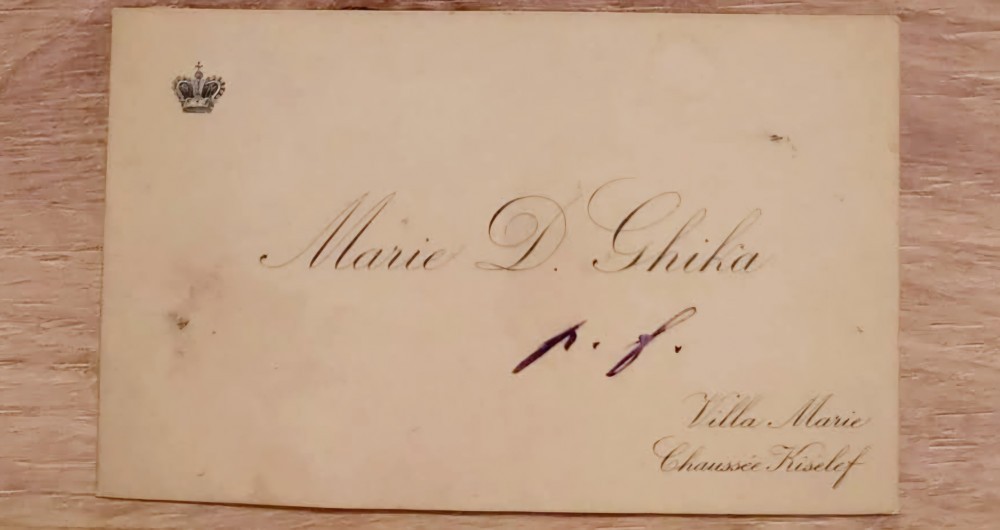 Marie D. Ghika
p. f.
Villa Marie
Chaussée Kiselef